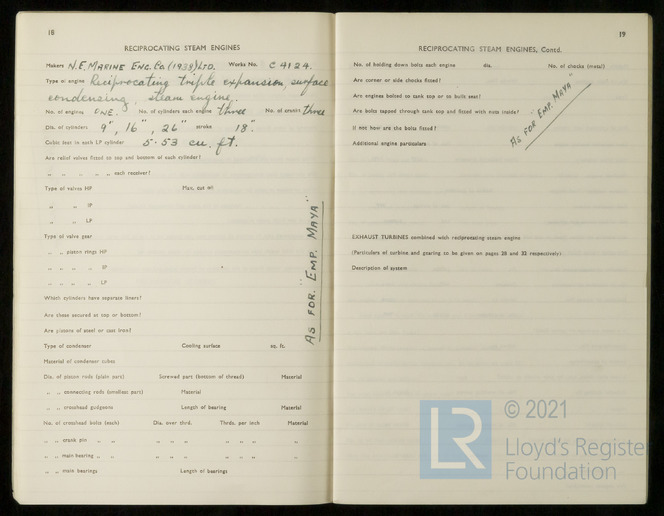 18
RECIPROCATING STEAM ENGINES
Makers N.E. MARINE ENG. Co (1938) LTD. Works No. C 4124.
Type of engine Reciprocating triple expansion, surface
condensing, steam engine.
No. of engines ONE. No. of cylinders each engine three No. of cranks three
Dia. of cylinders 9", 16", 26" stroke 18".
Cubic feet in each LP cylinder 5.53 cu. ft.
Are relief valves fitted to top and bottom of each cylinder?
„ „ „ „ „ each receiver?
Type of valves HP Max. cut off
„ „ IP
„ „ LP
Type of valve gear
„ „ piston rings HP
„ „ „ „ IP
„ „ „ „ LP
Which cylinders have separate liners?
Are these secured at top or bottom?
Are pistons of steel or cast iron?
Type of condenser Cooling surface sq. ft.
Material of condenser tubes
Dia. of piston rods (plain part) Screwed part (bottom of thread) Material
„ „ connecting rods (smallest part) Material
„ „ crosshead gudgeons Length of bearing Material
No. of crosshead bolts (each) Dia. over thrd. Thrds. per inch Material
„ „ crank pin „ „ „ „ „ „ „ „ „
„ „ main bearing „ „ „ „ „ „ „ „ „
„ „ main bearings Length of bearings
AS FOR. "EMP. MAYA"
19
RECIPROCATING STEAM ENGINES, Contd.
No. of holding down bolts each engine dia. No. of chocks (metal)
Are corner or side chocks fitted?
Are engines bolted to tank top or to built seat?
Are bolts tapped through tank top and fitted with nuts inside?
If not how are the bolts fitted?
Additional engine particulars
AS FOR "EMP. MAYA"
EXHAUST TURBINES combined with reciprocating steam engine
(Particulars of turbine and gearing to be given on pages 28 and 32 respectively)
Description of system
LR
© 2021
Lloyd's Register
Foundation